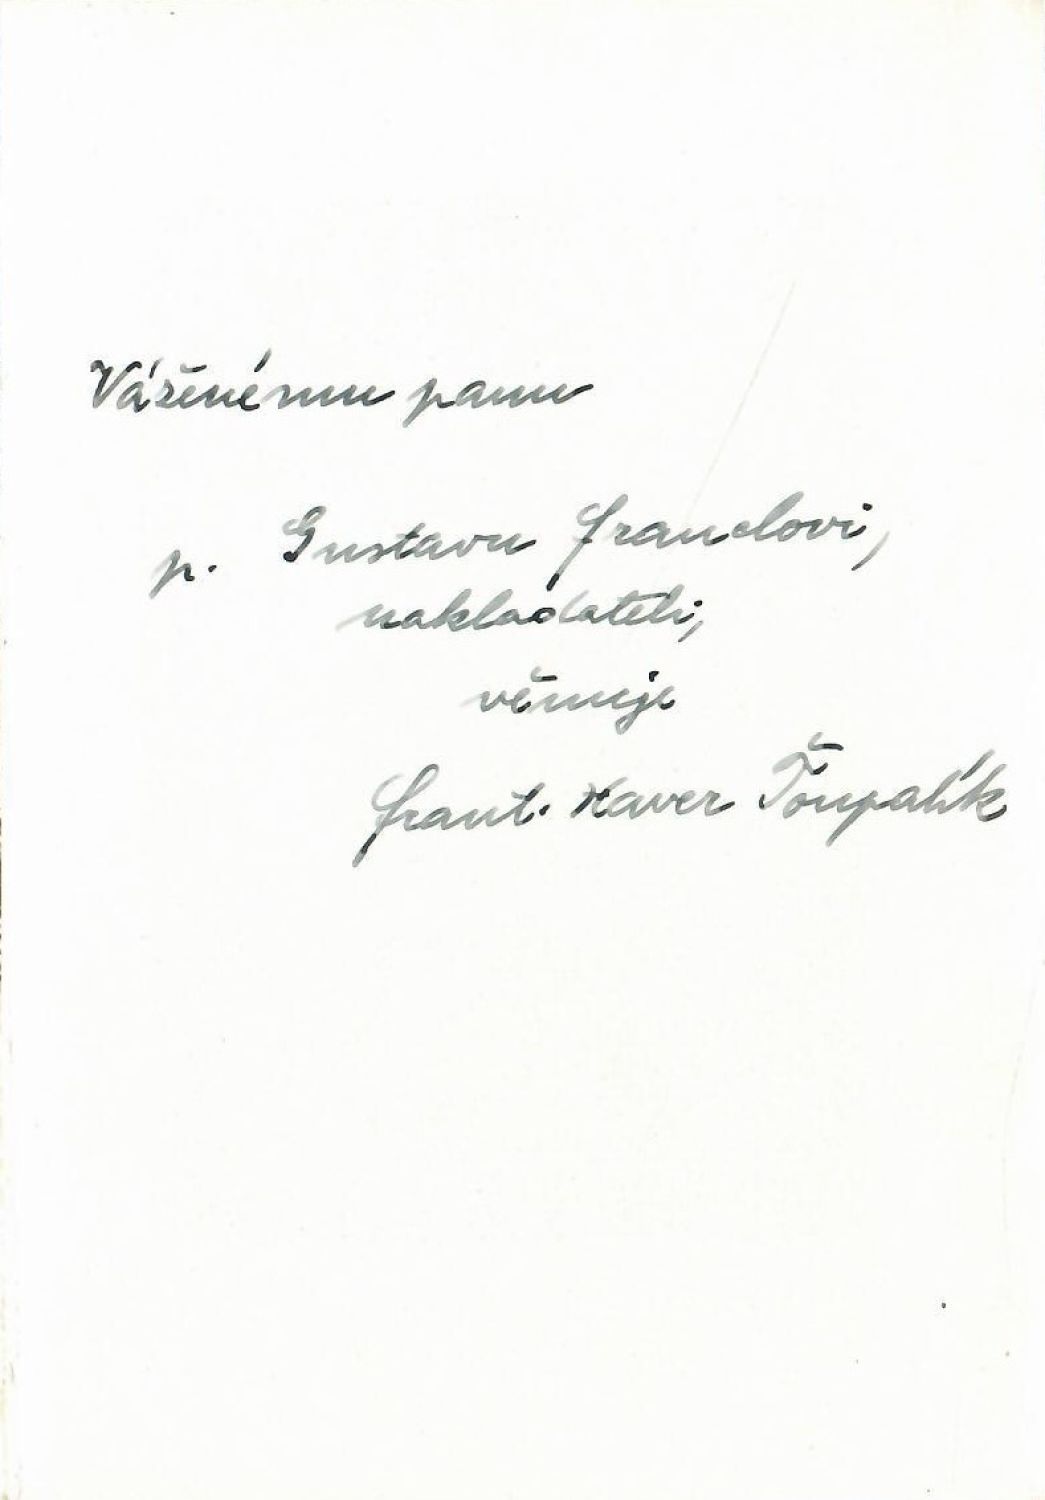 Váženému panu
p. Gustavu Franclovi,
nakladateli,
věnuje
Frant. Xaver Šoupalík